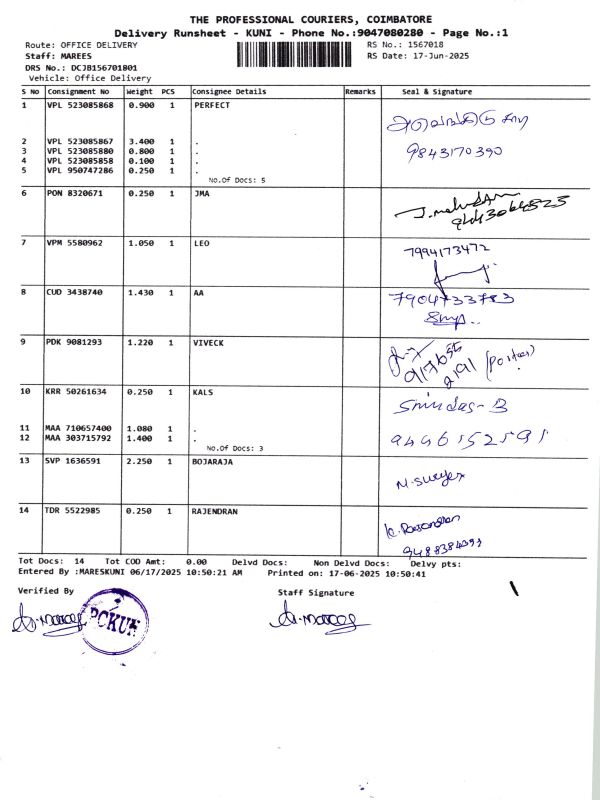 THE PROFESSIONAL COURIERS, COIMBATORE
Delivery Runsheet - KUNI - Phone No.:9047080280 - Page No.:1
Route: OFFICE DELIVERY RS No.: 1567018
Staff: MAREES RS Date: 17-Jun-2025
DRS No.: DCJB156701801
Vehicle: Office Delivery
S No Consignment No Weight PCS Consignee Details Remarks Seal & Signature
1 VPL 523085868 0.900 1 PERFECT
2 VPL 523085867 3.400 1 .
3 VPL 523085880 0.800 1 . 9843170390
4 VPL 523085858 0.100 1 .
5 VPL 950747286 0.250 1 .
No.Of Docs: 5
6 PON 8320671 0.250 1 JMA
7 VPM 5580962 1.050 1 LEO 7994173472
8 CUD 3438740 1.430 1 AA 7904733783
9 PDK 9081293 1.220 1 VIVECK
10 KRR 50261634 0.250 1 KALS
11 MAA 710657400 1.080 1 .
12 MAA 303715792 1.400 1 .
No.Of Docs: 3
13 SVP 1636591 2.250 1 BOJARAJA
14 TDR 5522985 0.250 1 RAJENDRAN
Tot Docs: 14 Tot COD Amt: 0.00 Delvd Docs: Non Delvd Docs: Delvy pts:
Entered By :MARESKUNI 06/17/2025 10:50:21 AM Printed on: 17-06-2025 10:50:41
Verified By Staff Signature
PCKUN